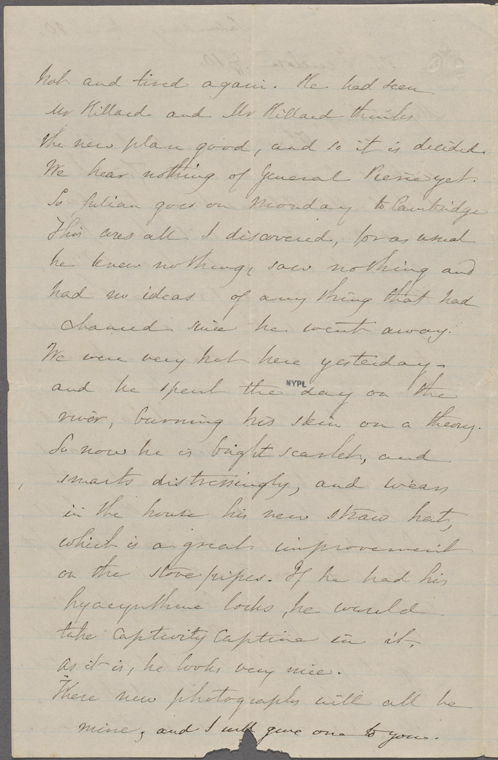 hot and tired again. He had seen
Mr Hillard and Mr Hillard thinks
the new plan good, and so it is decided.
We hear nothing of General Pierce yet.
So Julian goes on Monday to Cambridge
This was all I discovered, for as usual
he knew nothing, saw nothing and
had no ideas of any thing that had
chanced since he went away.
We were very hot here yesterday.
and he spent the day on the
NYPL
river, burning his skin on a theory.
So now he is bright scarlet, and
smarts distressingly, and wears
in the house his new straw hat,
which is a great improvement
on the stove pipes. If he had his
hyacynthine locks, he would
take captivity captive in it.
as it is, he looks very nice.
These new photographs will all be
mine, and I will give one to you.